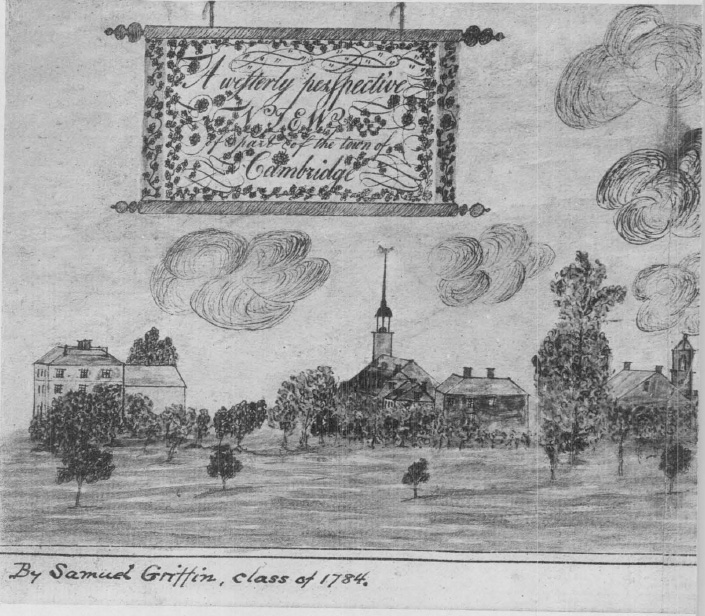 A westerly perspective
VIEW
of part of the town of
Cambridge
By Samuel Griffin, class of 1784.